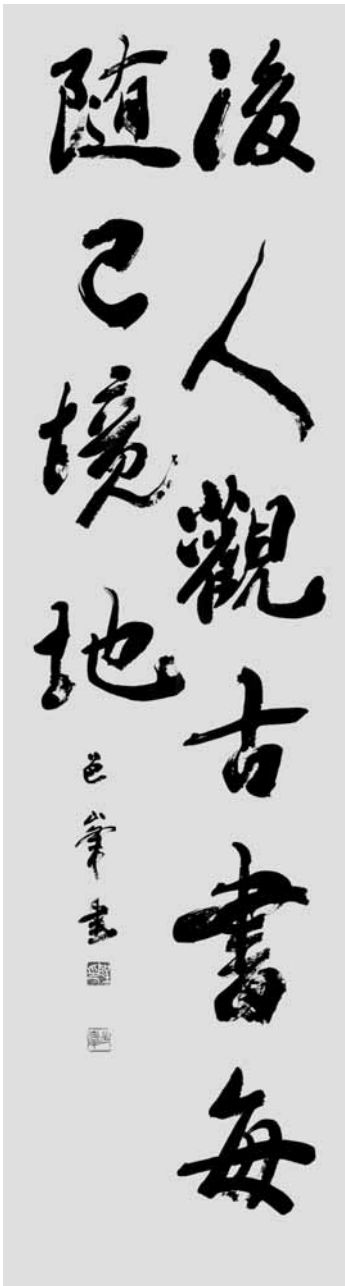 後人觀古書每
随己境地
邑峯書